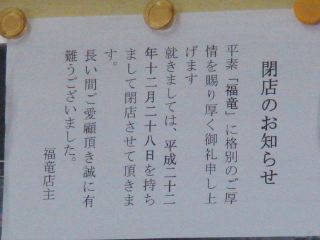 閉店のお知らせ
平素「福竜」に格別のご厚
情を賜り厚く御礼申し上
げます
就きましては、平成二十二
年十二月二十八日を持ち
まして閉店させて頂きま
す。
長い間ご愛顧頂き誠に有
難うございました。
福竜店主